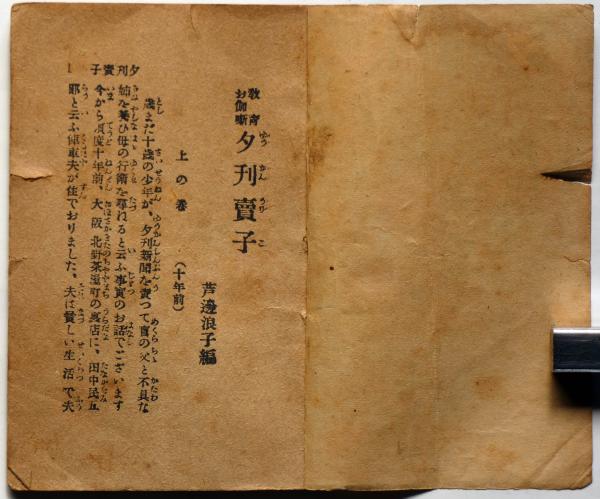 教育
お伽噺
夕刊賣子
蘆邊浪子編
上の卷
(十年前)
歳まだ十歳の少年が、夕刊新聞を賣つて盲の父と不具な
姉を養ひ母の行衛を尋ねると云ふ事實のお話でございます
今から頂度十年前、大阪北野茶屋町の裏店に、田中民五
郎と云ふ俥車夫が住でおりました、夫は貧しい生活で夫
夕刊賣子
1